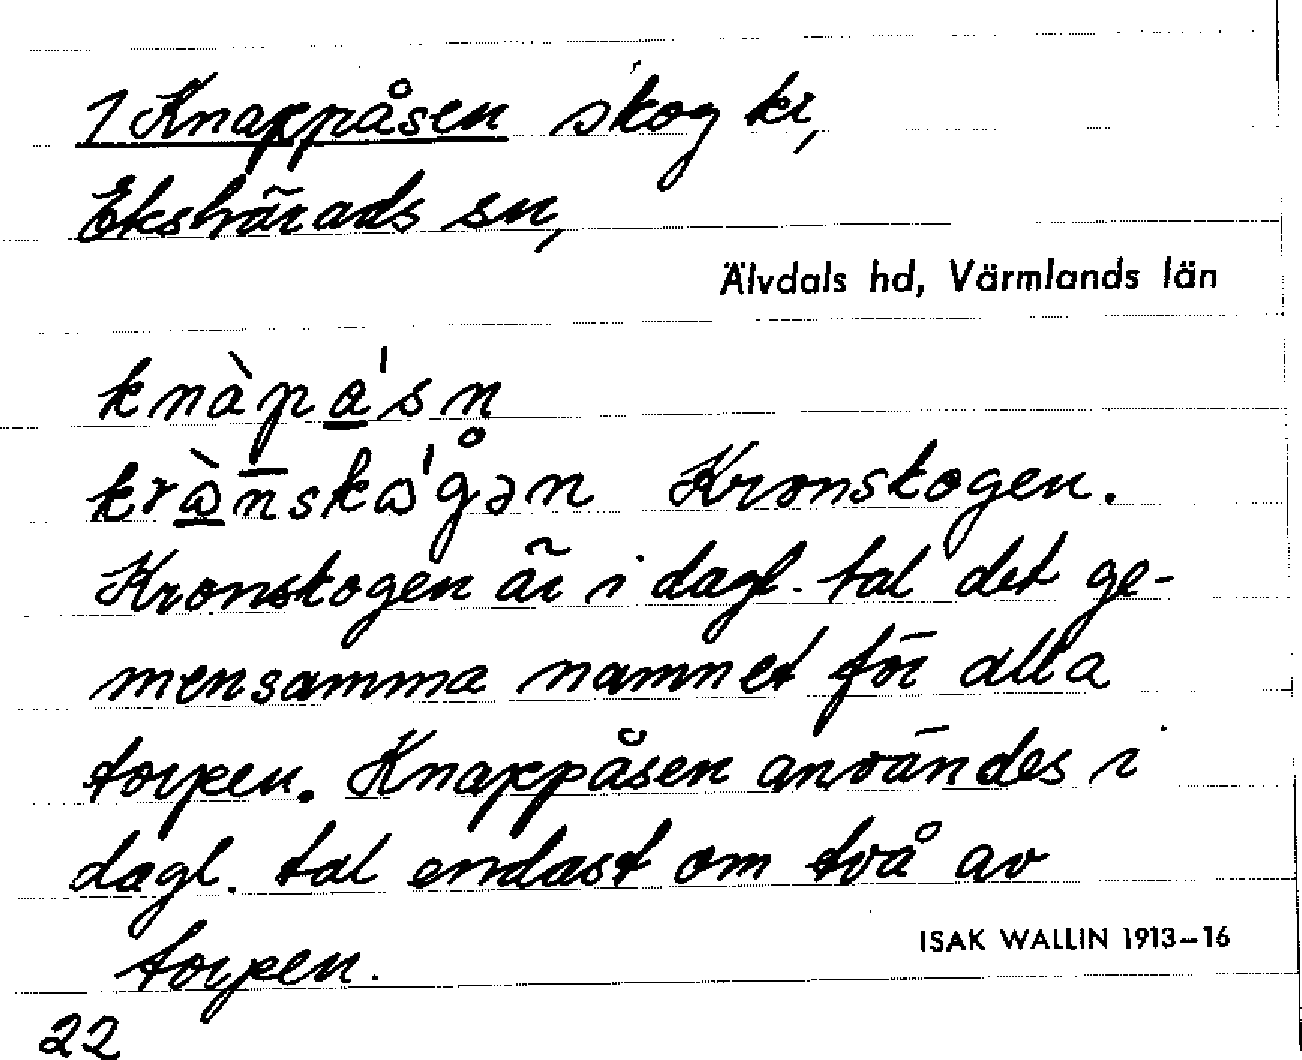 1 Knappåsen skog kr,
Ekshärads sn,
Älvdals hd, Värmlands län
knàpa̲'sn
krɷ̲̀n̄skɷ'g̊ən Kronskogen.
Kronskogen är i dagl. tal det ge-
mensamma namnet för alla
torpen. Knappåsen användes i
dagl. tal endast om två av
torpen.
ISAK WALLIN 1913–16
22